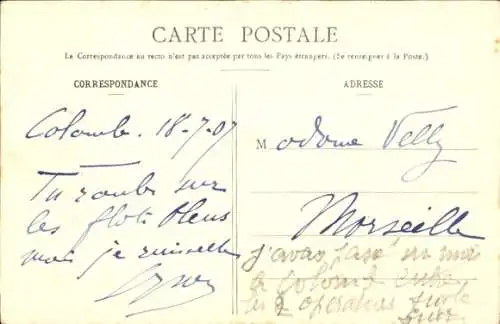 CARTE POSTALE
La Correspondance au recto n'est pas acceptée par tous les Pays étrangers. (Se renseigner à la Poste.)
CORRESPONDANCE
Colombo. 18-7-07
Tu roules sur
les flots bleus
moi je ruisselle
ADRESSE
Madame Velly
Marseille
j'avais passé un mois
à Colombo entre
les 2 opérations